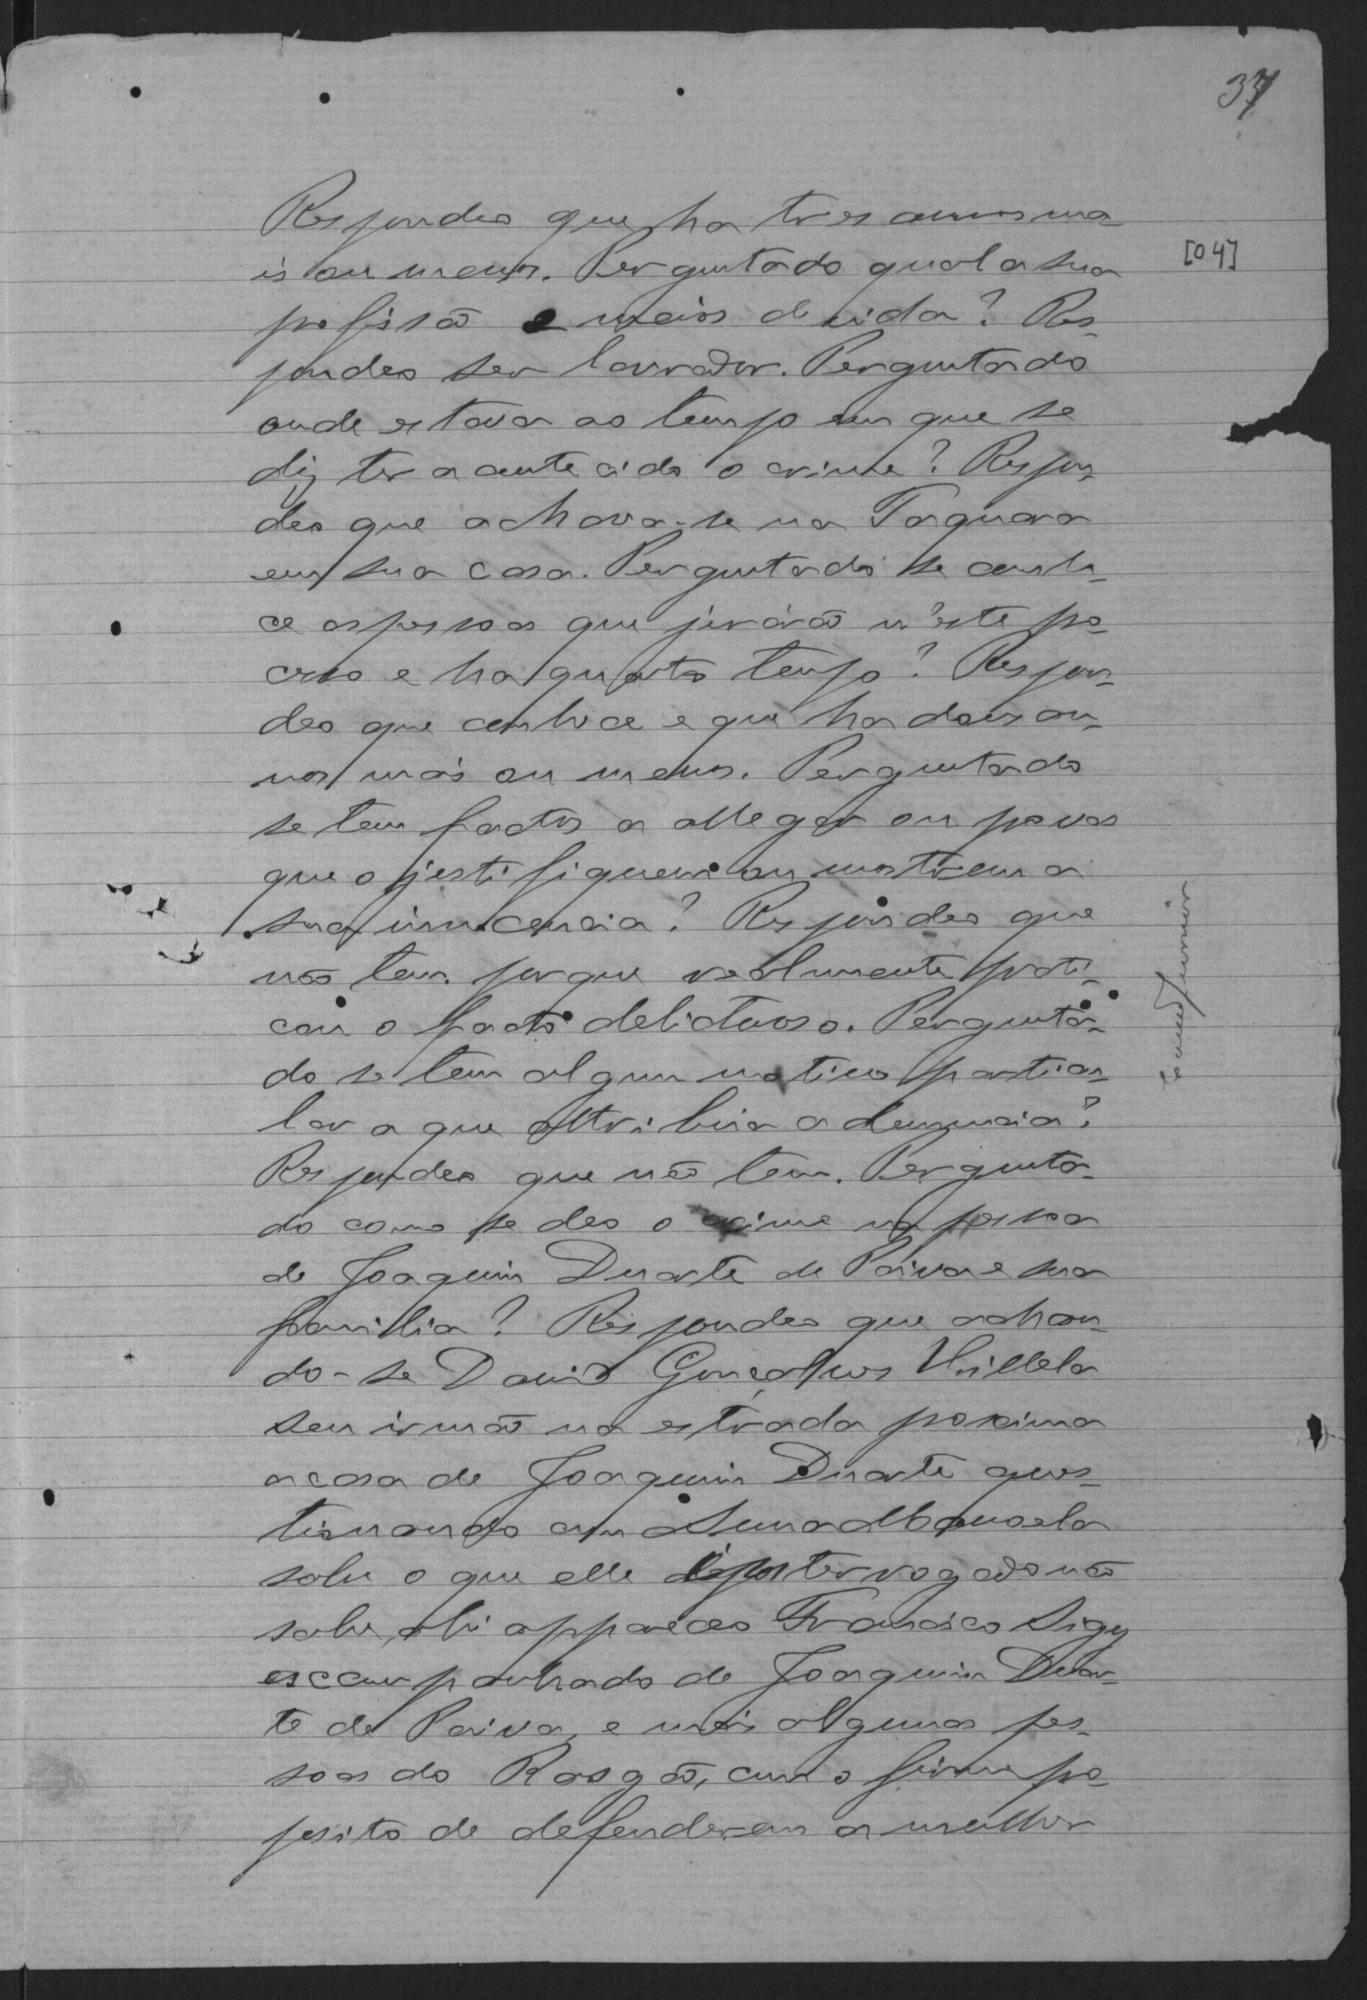 37
[04]
Respondeo que ha tres annos ma
is ou menos. Perguntado qual a sua
profissão e meios de vida? Res-
pondeo ser lavrador. Perguntado
onde estava ao tempo em que se
diz ter acontecido o crime? Respon-
deo que achava-se na Taquara
em sua casa. Perguntado se conhe-
ce as pessoas que jurárão n'este pro-
cesso e ha quanto tempo? Respon-
deo que conhece e que ha dous an-
nos mais ou menos. Perguntado
se tem factos a allegar ou provas
que o justifiquem ou mostrem a
sua innocencia? Respondeo que
não tem porque realmente prati-
cou o facto delictuoso. Perguntá-
do se tem algum motivo particu-
lar a que attribua a denuncia?
Respondeo que não tem. Pergunta-
do como se deo o crime na pessoa
de Joaquim Duarte de Paiva e sua
familia? Respondeo que achan-
do-se David Gonçalves Villela
seu irmão na estrada proxima
a casa de Joaquim Duarte ques-
tionando com
sobre o que elle interrogado não
sabe, ahi appareceo Francisco
accompanhado de Joaquim Duar-
te de Paiva, e mais algumas pes-
soas do Rasgão, com o firme pro-
posito de defenderem a mulher